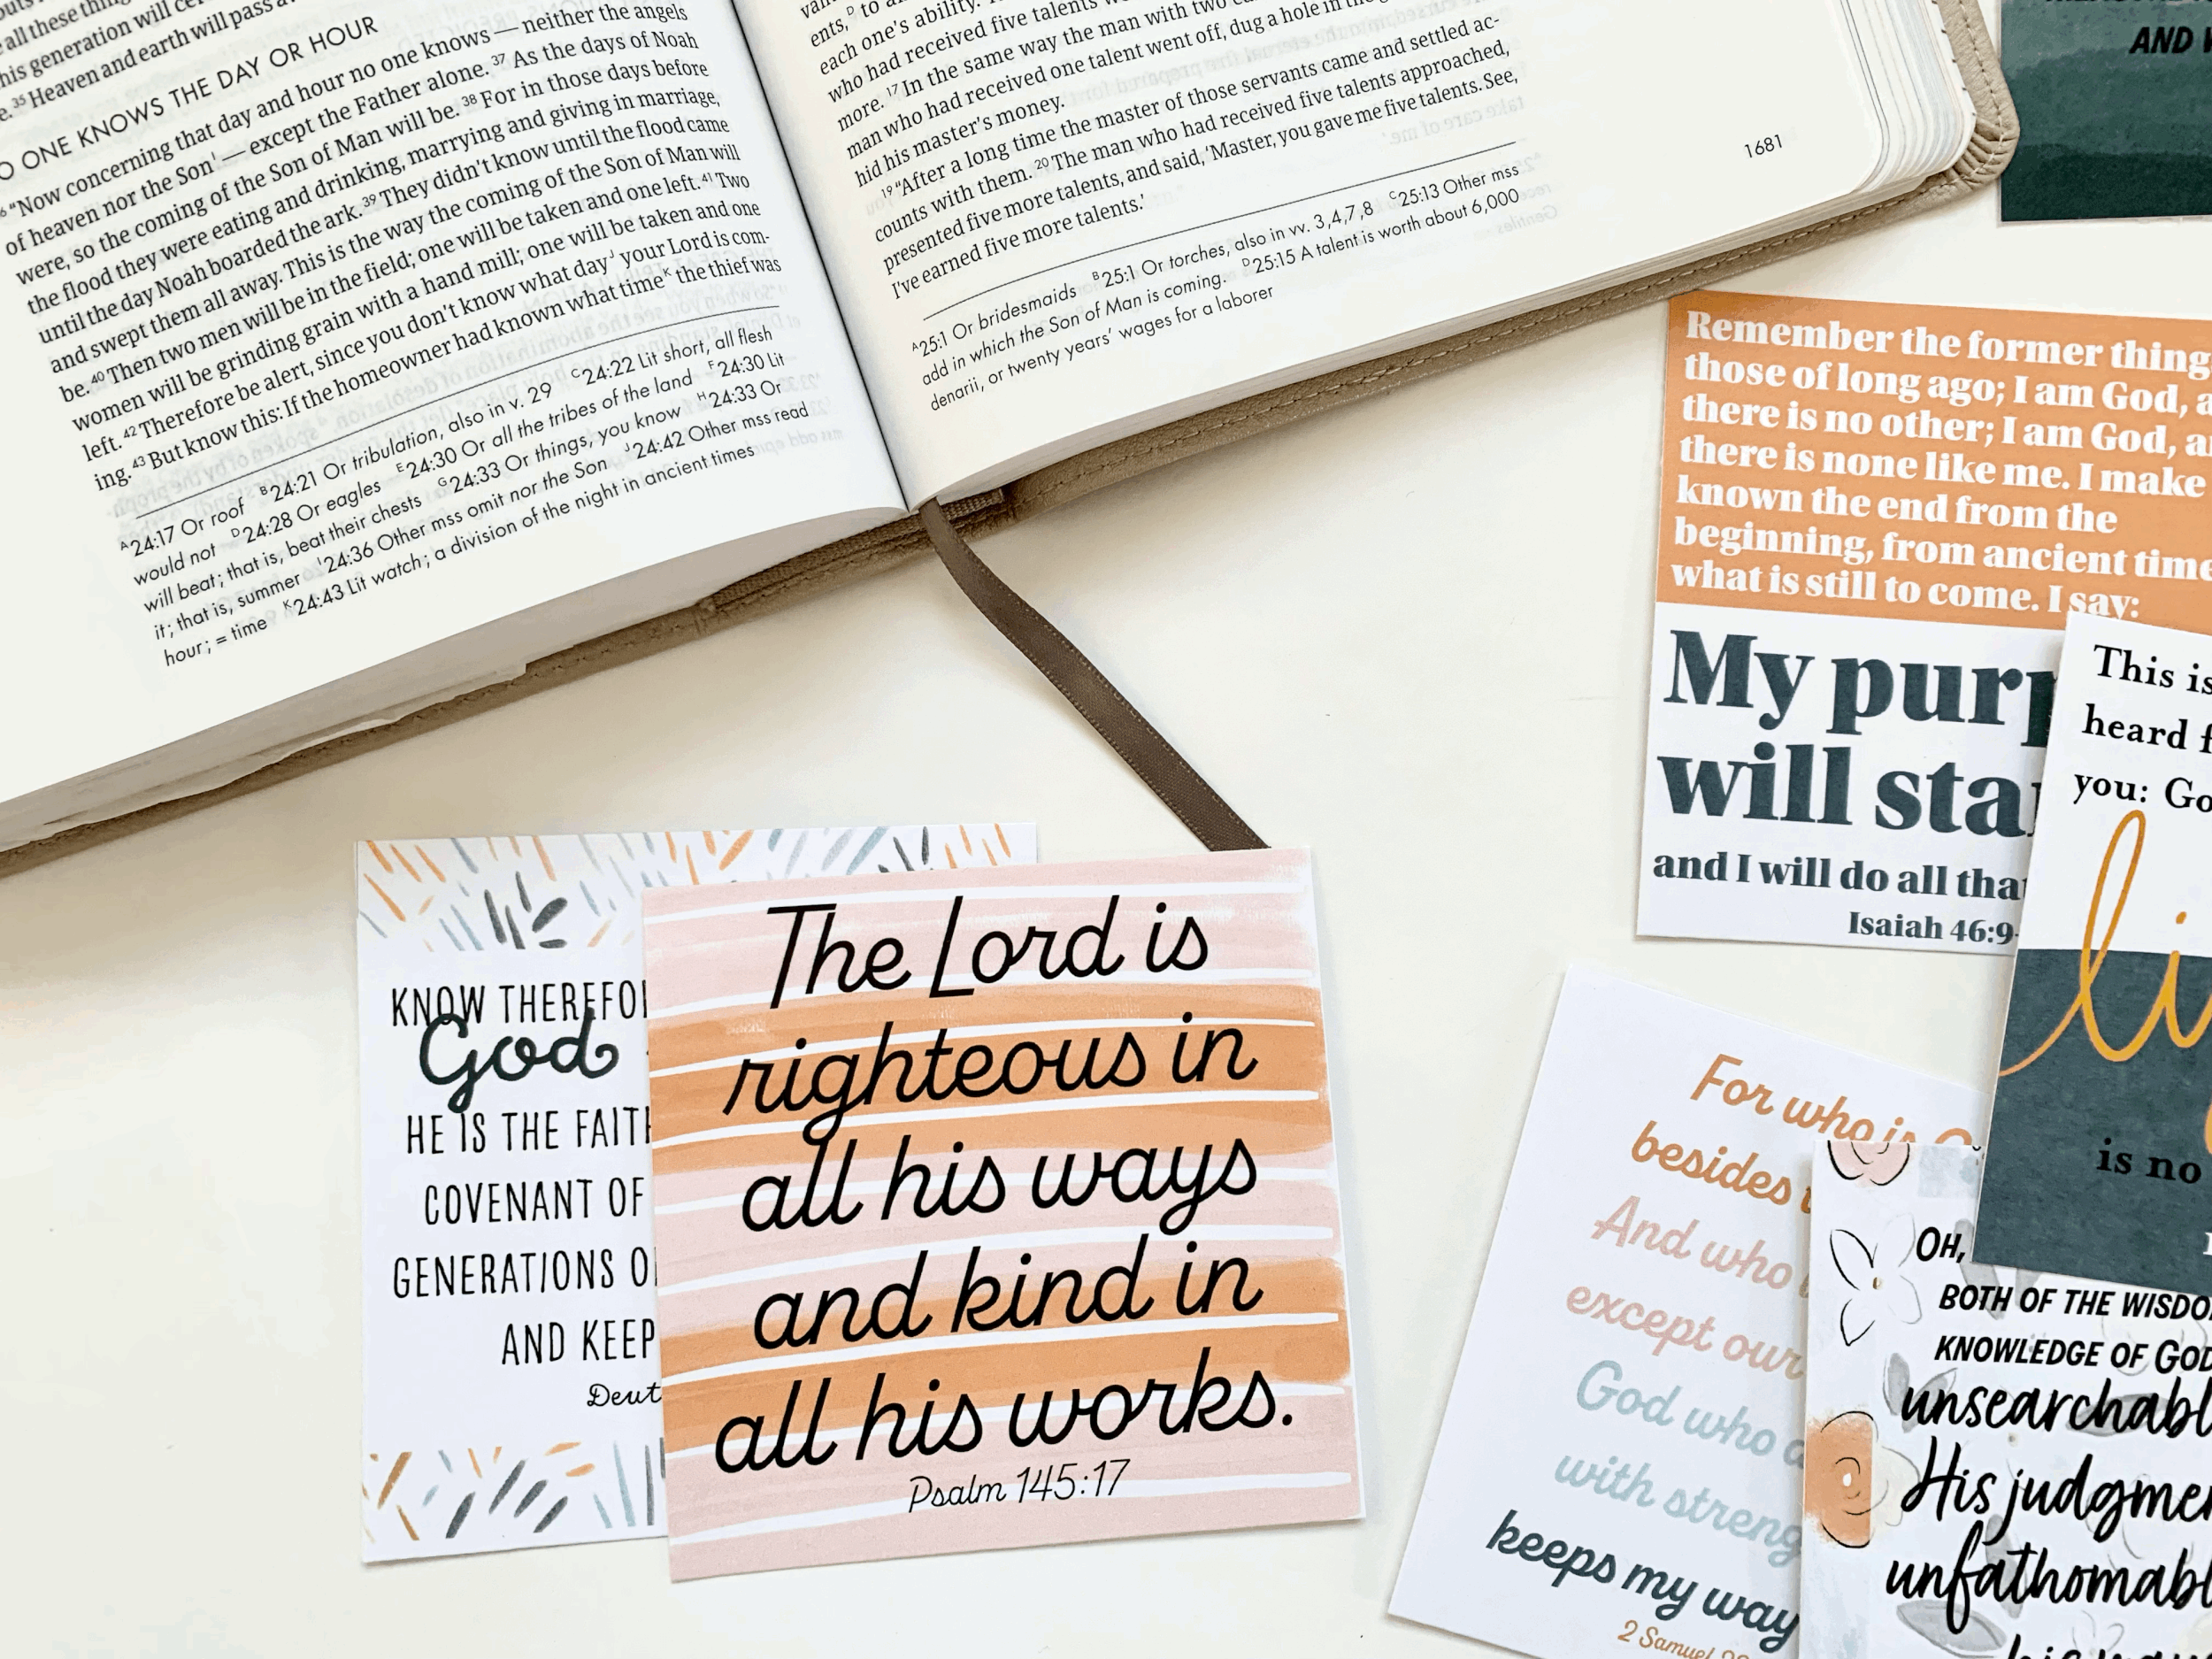 all these thing
his generation will
35 Heaven and earth will pass a
O ONE KNOWS THE DAY OR HOUR
"Now concerning that day and hour no one knows — neither the angels
of heaven nor the Son I — except the Father alone. 37 As the days of Noah
were, so the coming of the Son of Man will be. 38 For in those days before
the flood they were eating and drinking, marrying and giving in marriage,
until the day Noah boarded the ark. 39 They didn't know until the flood came
and swept them all away. This is the way the coming of the Son of Man will
be. 40 Then two men will be in the field; one will be taken and one left. 41 Two
women will be grinding grain with a hand mill; one will be taken and one
left. 42 Therefore be alert, since you don't know what day J your Lord is com-
ing. 43 But know this: If the homeowner had known what time K the thief was
A 24:17 Or roof B 24:21 Or tribulation, also in v. 29 C 24:22 Lit short, all flesh
would not D 24:28 Or eagles E 24:30 Or all the tribes of the land F 24:30 Lit
will beat; that is, beat their chests G 24:33 Or things, you know H 24:33 Or
it; that is, summer I 24:36 Other mss omit nor the Son J 24:42 Other mss read
hour; = time K 24:43 Lit watch; a division of the night in ancient times
ents, D to
each one's ability.
who had received five talents
more. 17 In the same way the man with two
man who had received one talent went off, dug a hole in the
hid his master's money.
19 "After a long time the master of those servants came and settled ac-
counts with them. 20 The man who had received five talents approached,
presented five more talents, and said, 'Master, you gave me five talents. See,
I've earned five more talents.'
A 25:1 Or bridesmaids B 25:1 Or torches, also in vv. 3,4,7,8 C 25:13 Other mss
add in which the Son of Man is coming. D 25:15 A talent is worth about 6,000
denarii, or twenty years' wages for a laborer
1681
AND
Remember the former thing
those of long ago; I am God, a
there is no other; I am God, a
there is none like me. I make
known the end from the
beginning, from ancient time
what is still to come. I say:
My purp
will sta
and I will do all tha
Isaiah 46:9-
This is
heard f
you: Go
li
is no
KNOW THEREFO
God
HE IS THE FAITH
COVENANT OF
GENERATIONS O
AND KEEP
Deut
The Lord is
righteous in
all his ways
and kind in
all his works.
Psalm 145:17
For who is
besides
And who
except our
God who
with streng
keeps my way
2 Samuel
OH,
BOTH OF THE WISDO
KNOWLEDGE OF GOD
unsearchabl
His judgme
unfathomabl